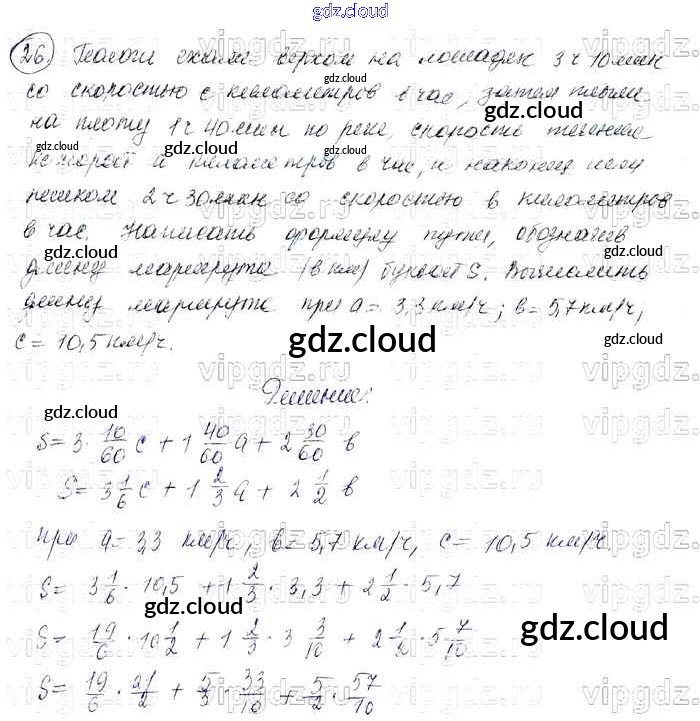 gdz.cloud
26. Туристы ехали верхом на лошадях 3 ч 10 мин
со скоростью с километров в час, затем плыли
на плоту 1 ч 40 мин по реке, скорость течения
которой а километров в час, и наконец шли
пешком 2 ч 30 мин со скоростью в километров
в час. Написать формулу пути, обозначив
длину маршрута (в км) буквой S. Вычислить
длину маршрута при а = 3,3 км/ч; в = 5,7 км/ч,
с = 10,5 км/ч.
gdz.cloud
Решение:
S = 3 10/60 с + 1 40/60 а + 2 30/60 в
S = 3 1/6 с + 1 2/3 а + 2 1/2 в
при а = 3,3 км/ч, в = 5,7 км/ч, с = 10,5 км/ч
S = 3 1/6 · 10,5 + 1 2/3 · 3,3 + 2 1/2 · 5,7
S = 19/6 · 10 1/2 + 1 2/3 · 3 3/10 + 2 1/2 · 5 7/10
S = 19/6 · 21/2 + 5/3 · 33/10 + 5/2 · 57/10